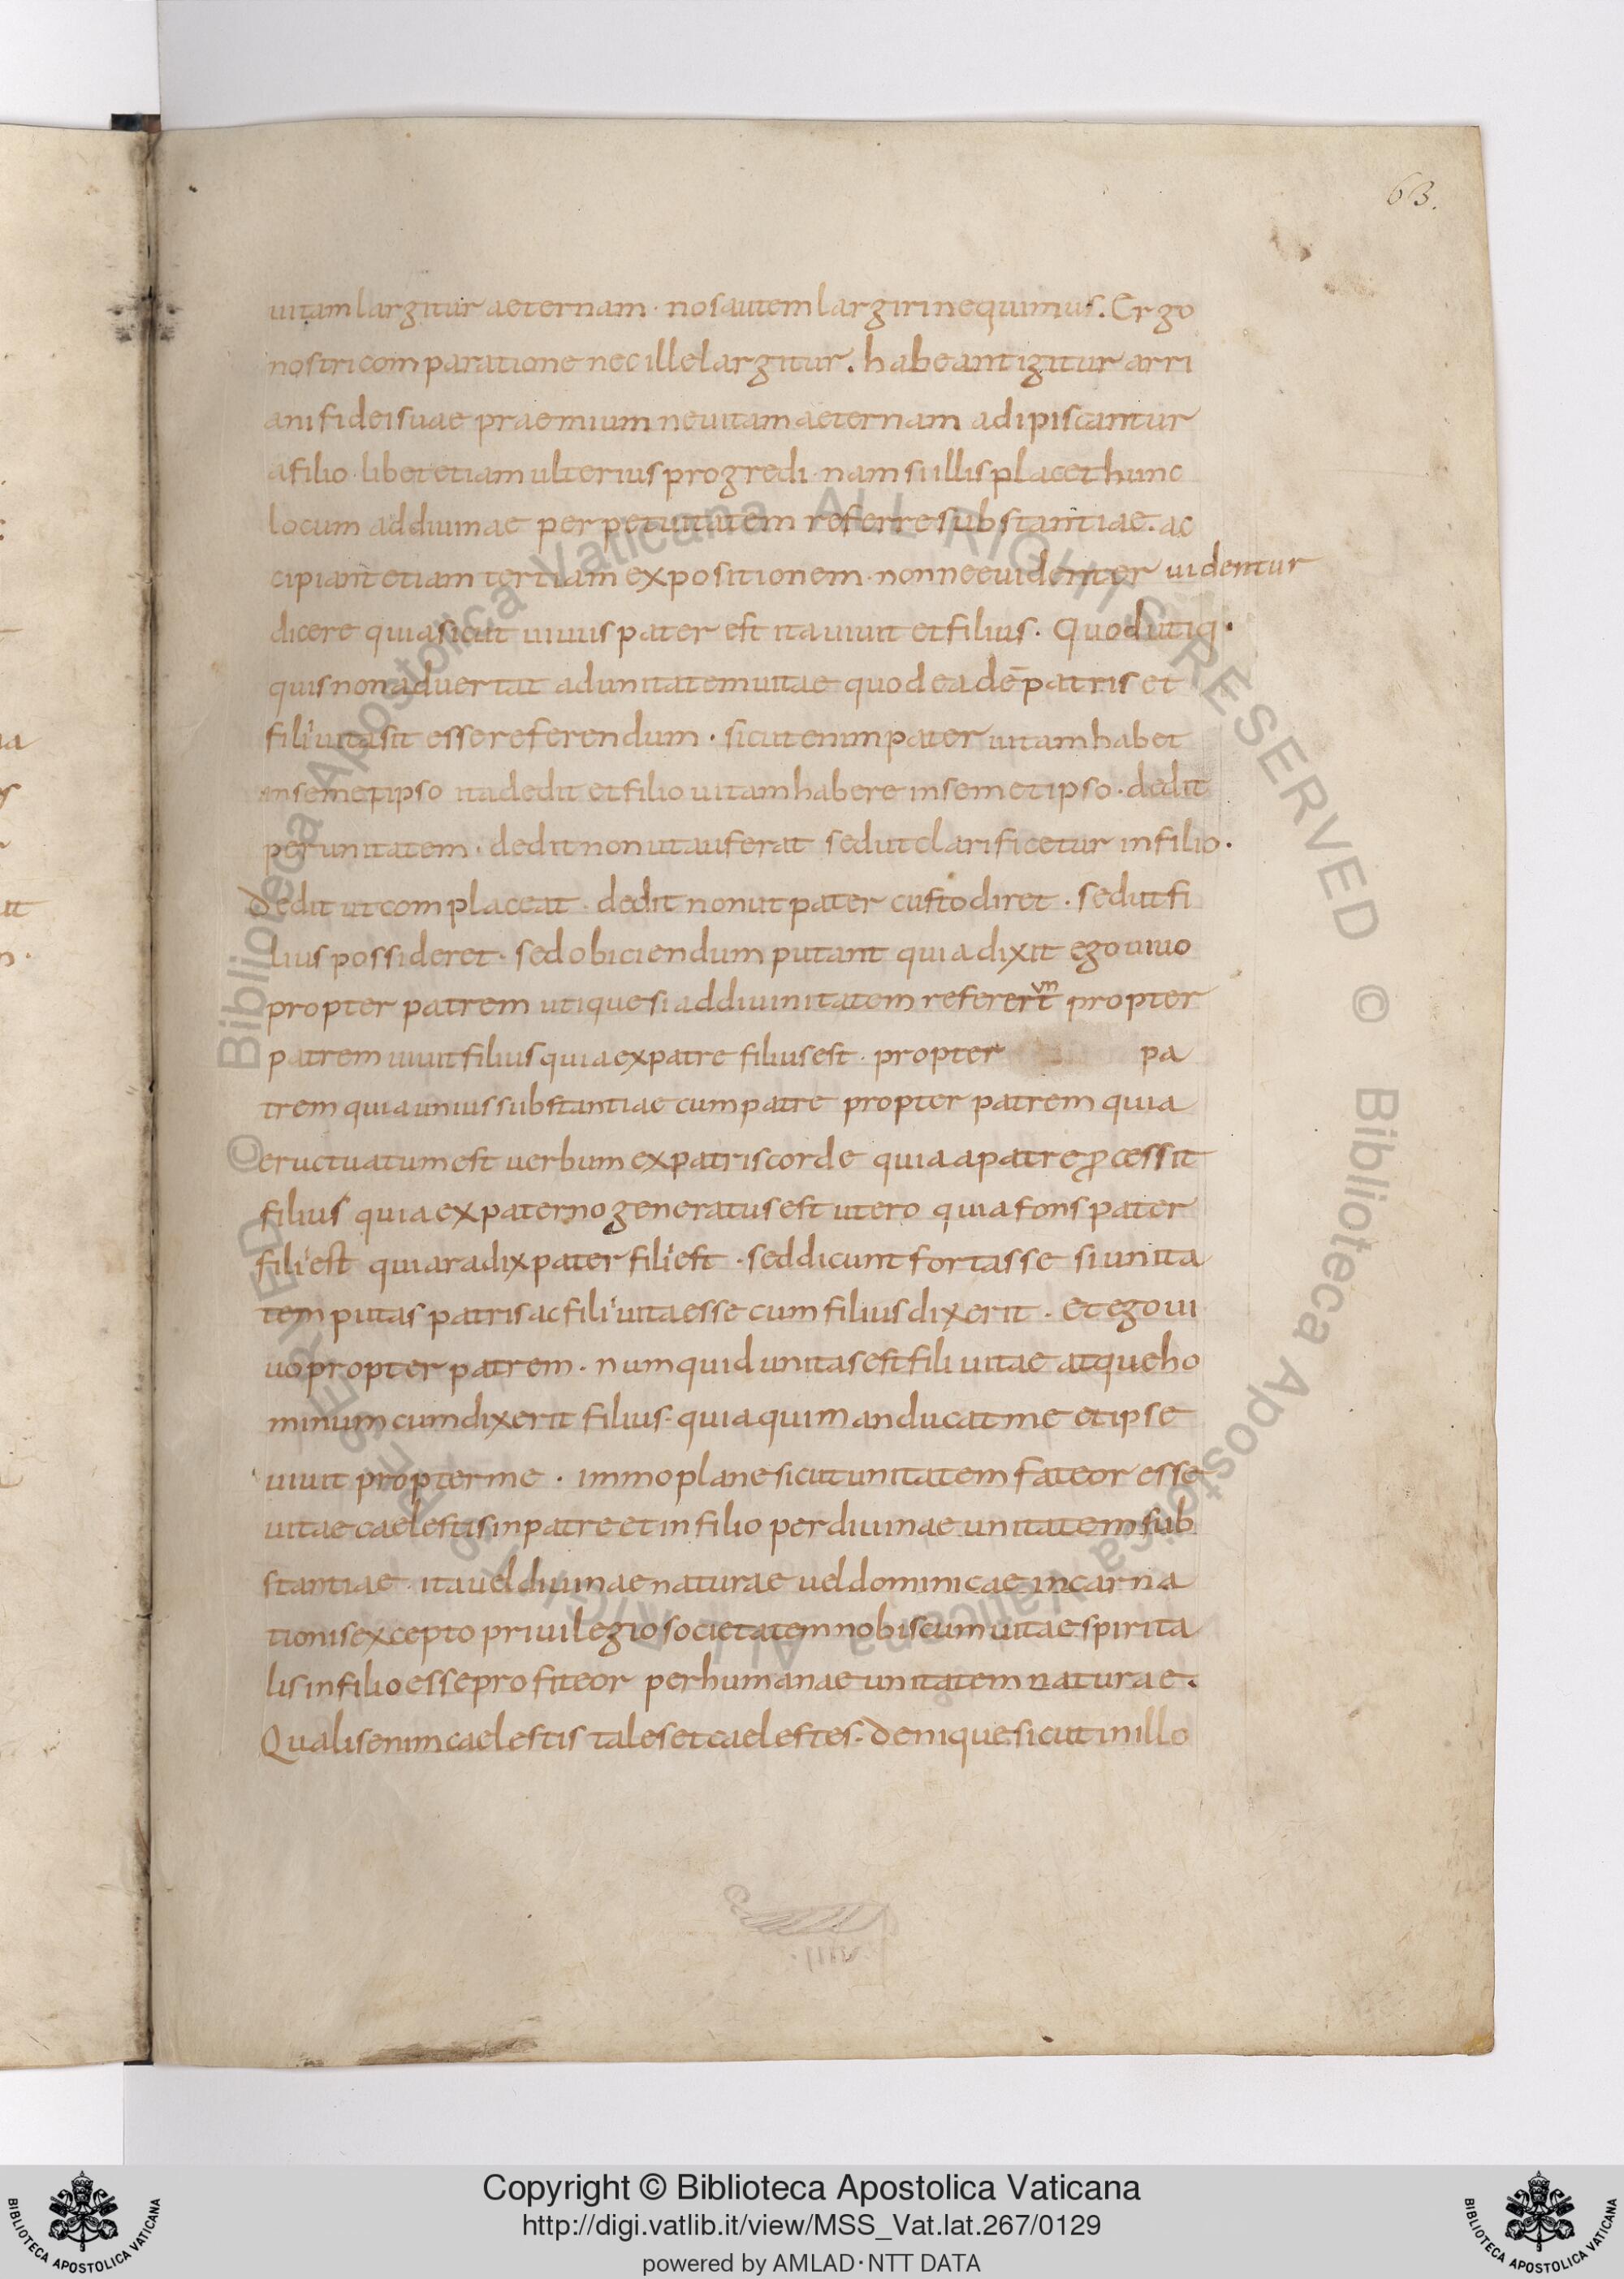 63.
uitam largitur aeternam · nos autem largiri nequimus. Ergo
nostri comparatione nec ille largitur. habeant igitur arri
ani fidei suae praemium ne uitam aeternam adipiscantur
a filio · libet etiam ulterius progredi · nam si illis placet hunc
locum ad diuinae perpetuitatem referre substantiae. ac
cipiant etiam tertiam expositionem · nonne euidenter uidentur
dicere quia sicut uiuus pater est ita uiuit et filius. Quod utiq·
quis non aduertat ad unitatem uitae quod eadē patris et
filii uita sit esse referendum · sicut enim pater uitam habet
in semetipso ita dedit et filio uitam habere in semetipso · dedit
per unitatem · dedit non ut auferat sed ut clarificetur in filio.
Dedit ut complaceat · dedit non ut pater custodiret · sed ut fi
lius possideret · sed obiciendum putant quia dixit ego uiuo
propter patrem utique si ad diuinitatem referert propter
patrem uiuit filius quia ex patre filius est · propter pa
trem quia unius substantiae cum patre propter patrem quia
eructuatum est uerbum ex patris corde quia a patre ꝓcessit
filius quia ex paterno generatus est utero quia fons pater
filii est quia radix pater filii est · sed dicunt fortasse si unita
tem putas patris ac filii uita esse cum filius dixerit · Et ego ui
uo propter patrem · numquid unitas est fili uitae atque ho
minum cum dixerit filius · quia qui manducat me et ipse
uiuit propter me · immo plane sicut unitatem fateor esse
uitae caelestis in patre et in filio per diuinae unitatem sub
stantiae · ita uel diuinae naturae uel dominicae incarna
tionis excepto priuilegio societatem nobiscum uitae spirita
lis in filio esse profiteor per humanae unitatem naturae.
Qualis enim caelestis tales et caelestes · Denique sicut in illo
© Biblioteca Apostolica Vaticana ALL RIGHTS RESERVED © Biblioteca Apostolica Vaticana ALL RIGHTS RESERVED
Copyright © Biblioteca Apostolica Vaticana
http://digi.vatlib.it/view/MSS_Vat.lat.267/0129
powered by AMLAD·NTT DATA
BIBLIOTECA APOSTOLICA VATICANA
BIBLIOTECA APOSTOLICA VATICANA